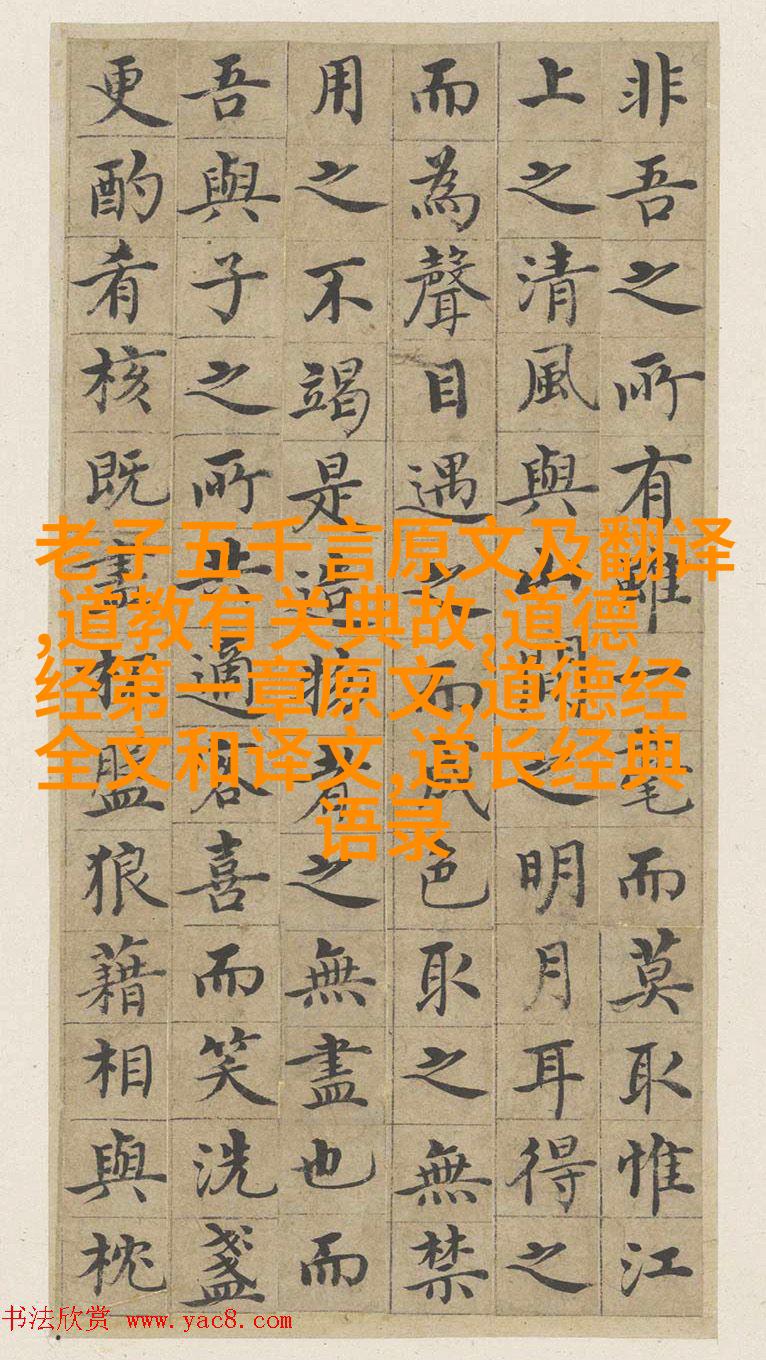 非吾之所有雖一毫而莫取惟江
上之清風與山間之明月耳得之
而為聲目遇之而成色取之無禁
用之不竭是造物者之無盡也而
吾與子之所共適客喜而笑洗盞
更酌肴核既盡杯盤狼藉相與枕
老子五千言原文及翻译
,道教有关典故,道德
经第一章原文,道德经
全文和译文,道长经典
语录
书法欣赏 www.yac8.com